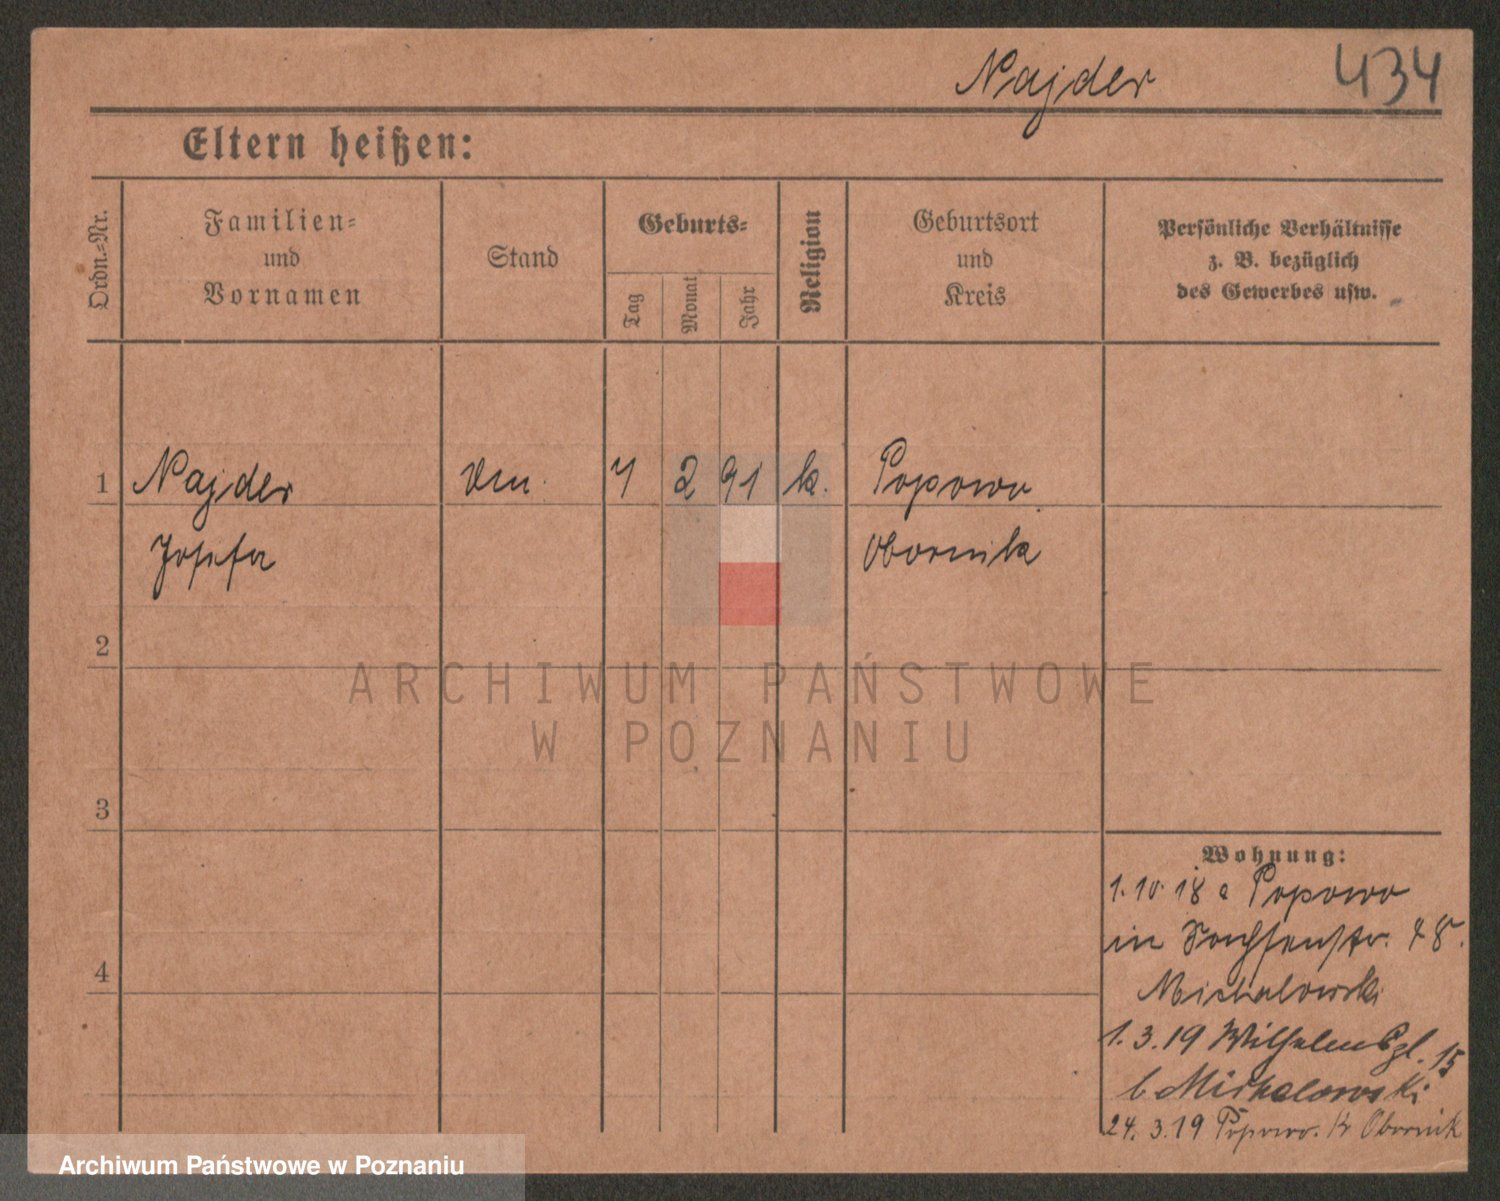 Najder 434
Eltern heißen:
Ordn.-Nr.
Familien- und Vornamen
Stand
Geburts-
Tag
Monat
Jahr
Religion
Geburtsort und Kreis
Persönliche Verhältnisse
z. B. bezüglich
des Gewerbes usw.
1 Najder 2 91 k. Popowo
Josefa Obornik
2
ARCHIWUM PAŃSTWOWE
W POZNANIU
3
Wohnung:
1. 10 18 a Popowo
in Sachsenstr. 48.
4
Michalowski
1. 3. 19 Wilhelmspl. 15
b Michalowski
24. 3. 19 Popowo. Kr Obornik
Archiwum Państwowe w Poznaniu